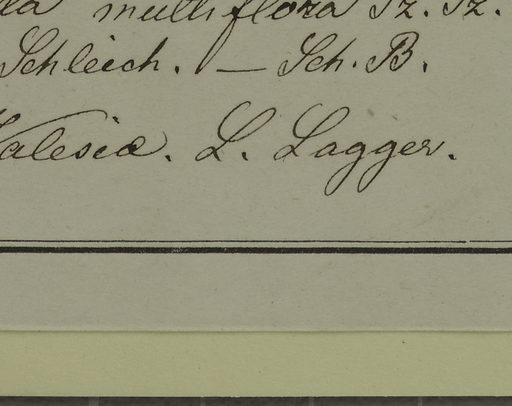 multiflora Sz. Sz.
Schleich. — Sch. B.
Valesia. L. Lagger.